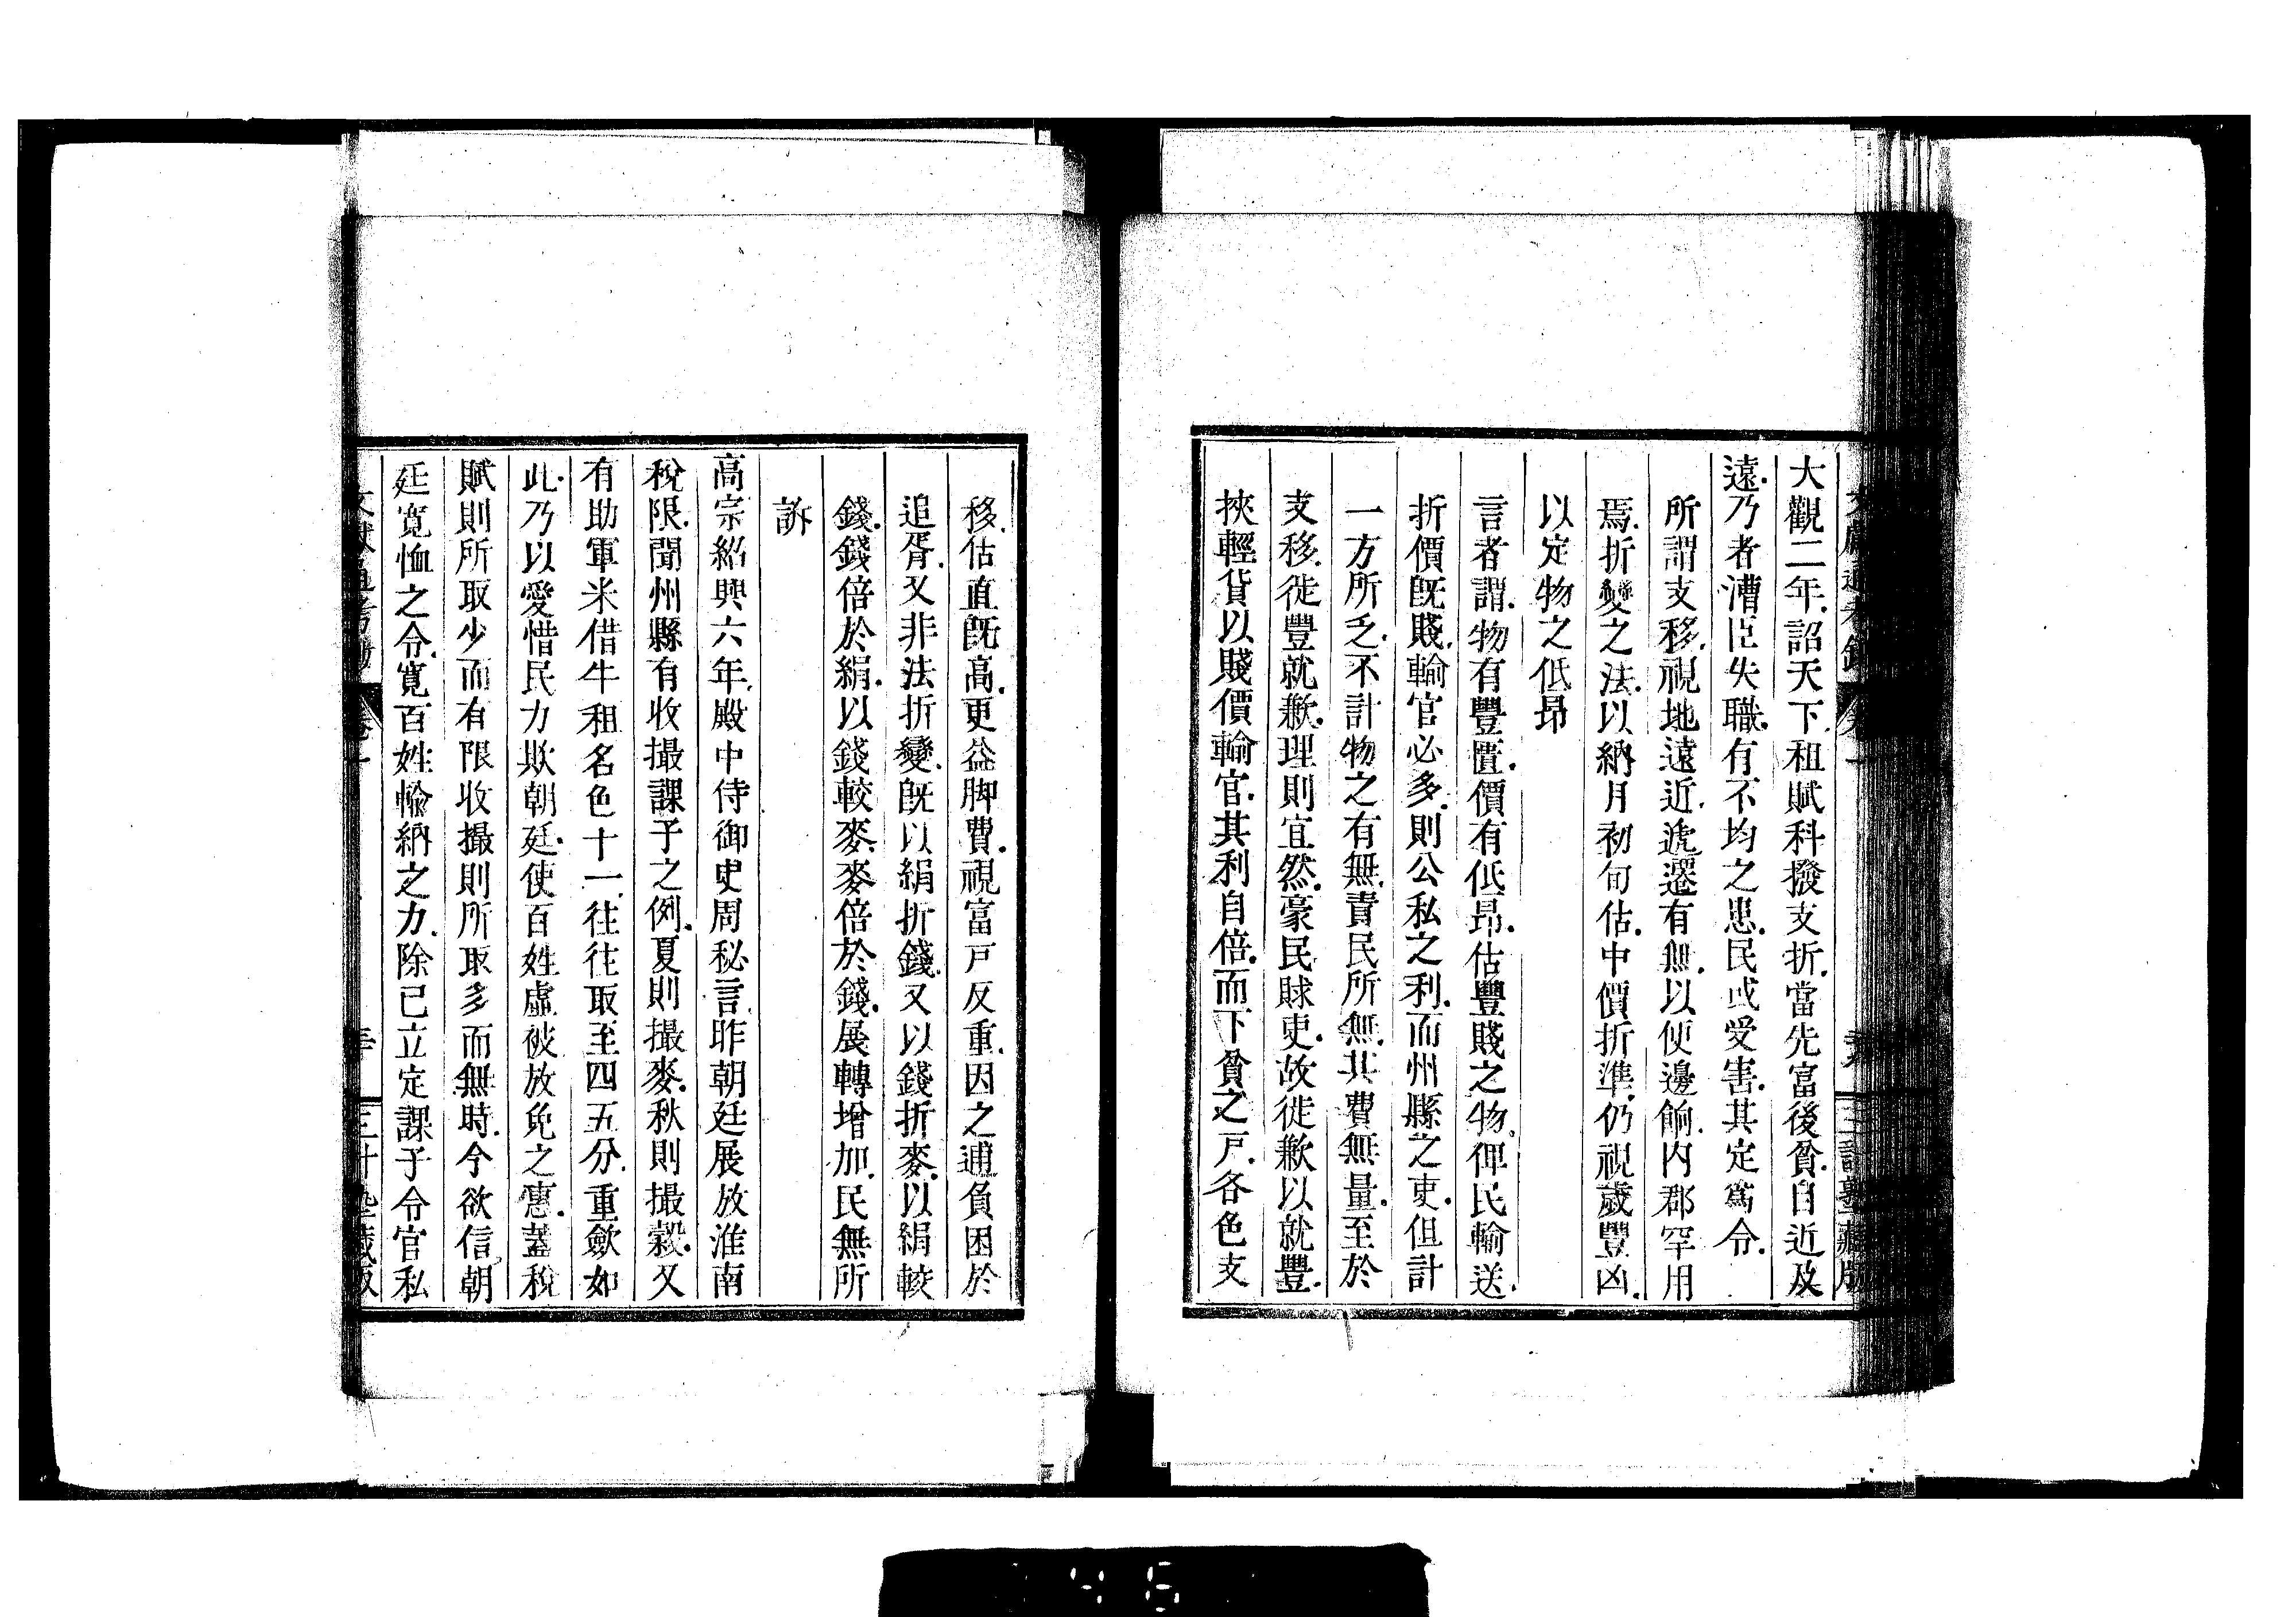 大觀二年詔天下租賦科撥支折當先富後貧自近及
遠乃者漕臣失職有不均之患民或受害其定爲令
所謂支移視地遠近遞遷有無以便邊餉內郡罕用
焉折變之法以納月初旬估中價折準仍視歲豐凶
以定物之低昂
言者謂物有豐匱價有低昂估豐賤之物俾民輸送
折價旣賤輸官必多則公私之利而州縣之吏但計
一方所乏不計物之有無責民所無其費無量至於
支移徙豐就歉理則宜然豪民賕吏故徙歉以就豐
挾輕貨以賤價輸官其利自倍而下貧之戸各色支
移估直旣高更益脚費視富戸反重因之逋負困於
追胥又非法折變旣以絹折錢又以錢折麥以絹較
錢錢倍於絹以錢較麥麥倍於錢展轉增加民無所
訴
高宗紹興六年殿中侍御史周秘言昨朝廷展放淮南
稅限聞州縣有收撮課子之例夏則撮麥秋則撮穀又
有助軍米借牛租名色十一往往取至四五分重歛如
此乃以愛惜民力欺朝廷使百姓虛被放免之惠蓋稅
賦則所取少而有限收撮則所取多而無時今欲信朝
廷寬恤之令寬百姓輸納之力除已立定課子令官私